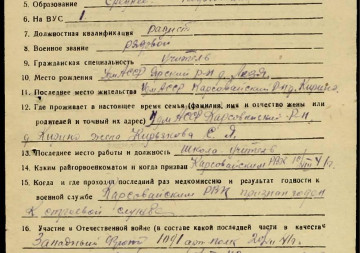 5. Образование Среднее
6. На ВУС 1
7. Должностная квалификация радист
8. Военное звание рядовой
9. Гражданская специальность учитель
10. Место рождения УдмАССР Ярский р-н д.
11. Последнее место жительства УдмАССР Карсовайский р-н, д. Кирино
12. Где проживает в настоящее время семья (фамилия, имя и отчество жены или
родителей и точный их адрес) УдмАССР Карсовайский Р-н,
д. Кирино жена С. Я.
13. Последнее место работы и должность Школа учитель
14. Каким райгорвоенкоматом и когда призван Карсовайским РВК
15. Когда и где проходил последний раз медкомиссию и результат годности к
военной службе Карсовайским РВК признан годен
к строевой службе
16. Участие в Отечественной войне (в составе какой последней части и в качестве
Западный Фронт 1091 арт полк